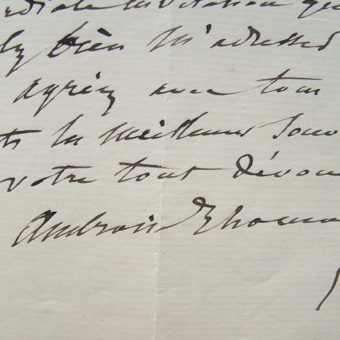 invitation qu
bien m'adresser
agréez avec tous
les meilleurs souv
votre tout dévou
Ambroise Thomas